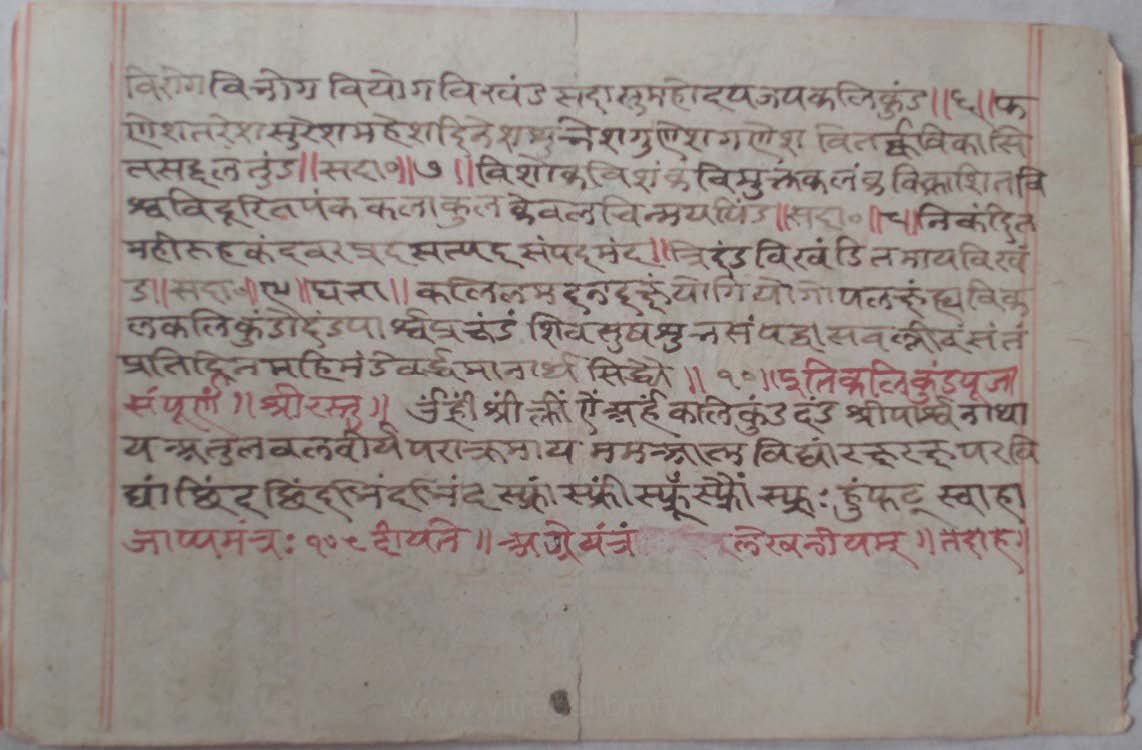 विरोग विभोग वियोग विखंड सदासुमहोदयजयकलिकुंड ॥६॥ फ
णेशनरेशसुरेशमहेशदिनेशशुभेशगुणेशगणेश वितर्क्कविकासि
तसद्दलतुंड ॥ सदा०॥ ७ ॥ विशोकविशंकविमुक्तकलंक विकाशितवि
श्वविदूरितपंक कलाकुल केवलचिन्मयपिंड ॥ सदा० ॥८॥ निकंदित
महीरुहकंदवरप्रद सत्पद संपदमंद ॥ त्रिदंडविखंडितमायविखं
ड ॥ सदा०॥ ९ ॥ घत्ता ॥ कलिलमदनदक्षं योगियोगोपलक्षं ह्यविक
लकलिकुंडोदंडपार्श्वप्रचंडं शिवसुषशुभसंपद्वासवल्लीवसंतं
प्रतिदिनमहिमंडेवर्द्धमानार्थ सिद्ध्यै ॥ १०॥ इतिकलिकुंडपूजा
संपूर्णां ॥ श्रीरस्तु ॥ ॐ ह्रीं श्रीं क्लीं ऐं अर्हं कलिकुंडदंड श्रीपार्श्वनाथा
य अतुलबलवीर्यपराक्रमाय ममआत्मविद्यां रक्षरक्ष परवि
द्यां छिंद छिंद भिंद भिंद स्फ्रां स्फ्रीं स्फ्रूं स्फ्रौं स्फ्रः हुंफट् स्वाहा
जाप्यमंत्रः १०८ दीयते ॥ अग्रे यंत्रं लेखनीयम् ॥ तदाह ॥